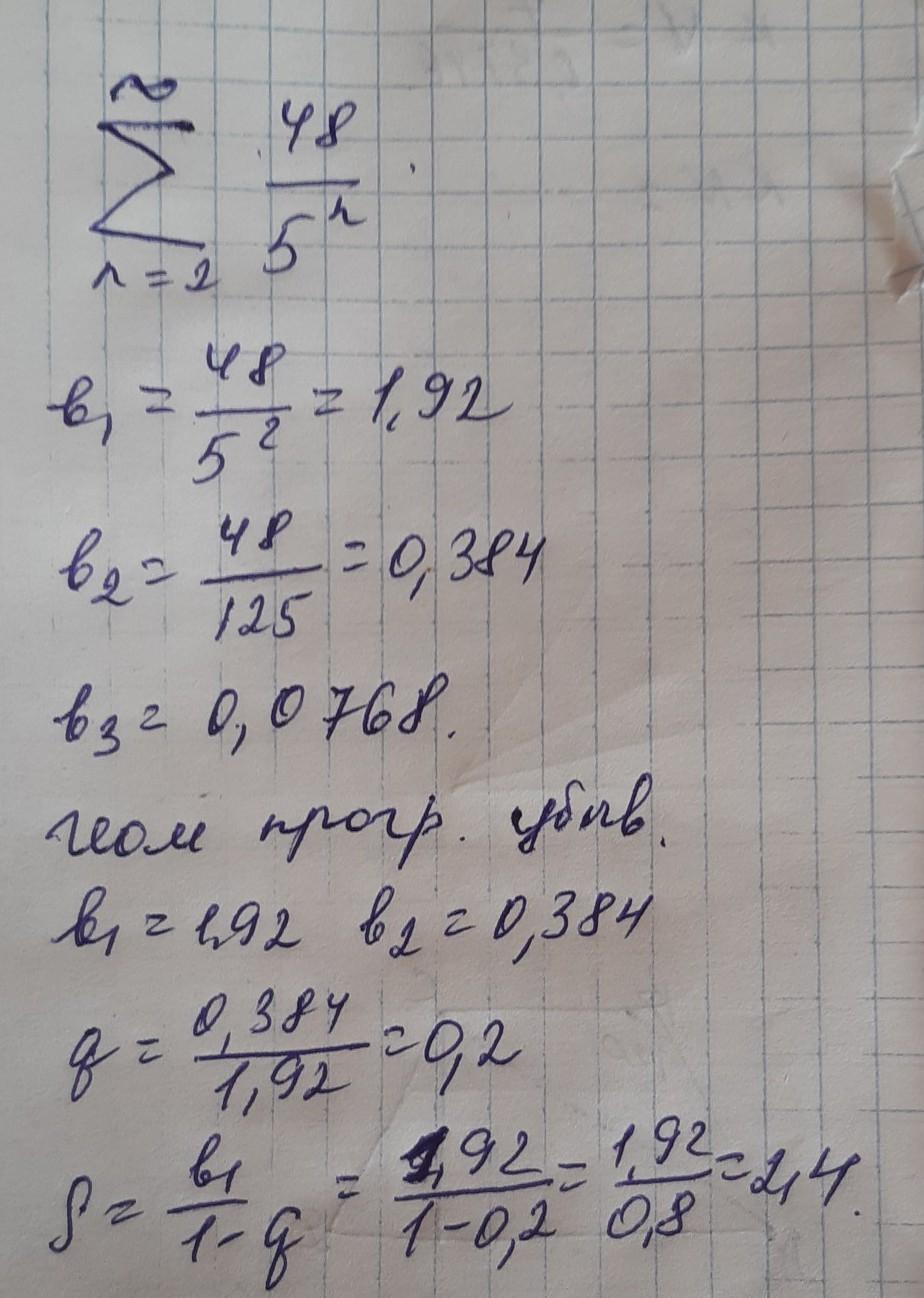 ∞
∑ 48/5ⁿ
n = 2
в₁ = 48/5² = 1,92
в₂ = 48/125 = 0,384
в₃ = 0,0768.
геом прогр. убыв.
в₁ = 1,92 в₂ = 0,384
q = 0,384/1,92 = 0,2
S = в₁/1-q = 1,92/1-0,2 = 1,92/0,8 = 2,4.